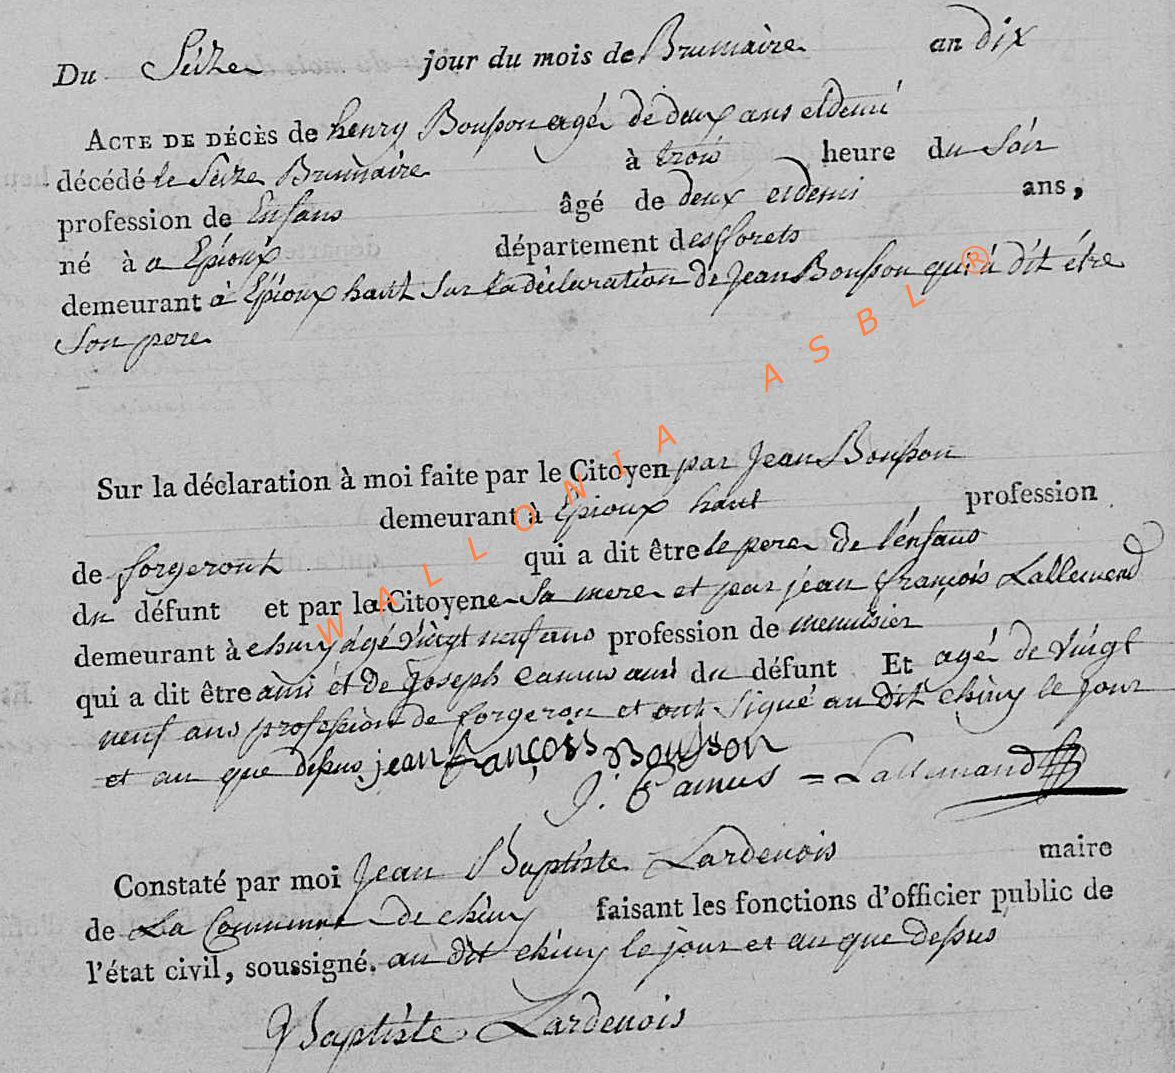 Du Seize jour du mois de Brumaire an dix
ACTE DE DÉCÈS de henry Bousson agé de deux ans et demi
décédé le Seize Brumaire à trois heure du Soir
profession de Enfans âgé de deux et demi ans,
né à a Epioux département des forets
demeurant à Epioux haut Sur la déclaration de Jean Bousson qui a dit étre
Son pere
Sur la déclaration à moi faite par le Citoyen par Jean Bousson
demeurant à Epioux haut profession
de forgeront qui a dit être le pere de l'énfans
du défunt et par la Citoyene Sa mere et par jean françois Lallemend
demeurant à chiny agé vingt neuf ans profession de menuisier
qui a dit être ami ét de Joseph Camus ami du défunt Et agé de Vingt
neuf ans profession de forgeron et ont Signé au Dit chiny le jour
et an que dessus jean françois Bousson
J. Camus = Lallemand
Constaté par moi Jean Baptiste Lardenois maire
de La Commune de chiny faisant les fonctions d'officier public de
l'état civil, soussigné. au dit chiny le jour et an que dessus
JBaptiste Lardenois
WALLONIA ASBL ®